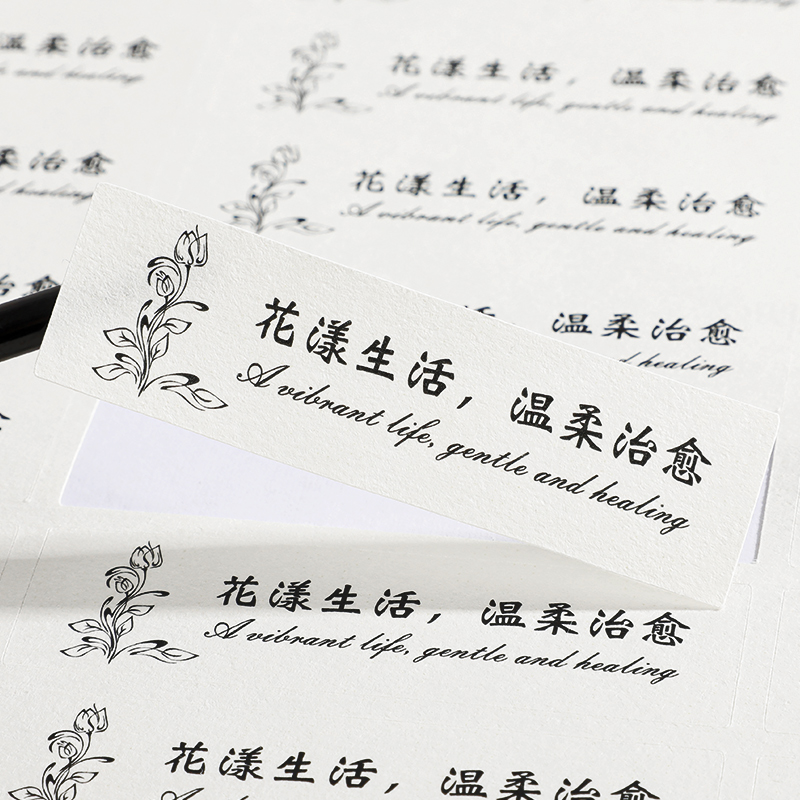 柔治愈
and healing
花漾生活，温柔治愈
A vibrant life, gentle and healing
柔治愈
and healing
花漾生活，温柔治愈
A vibrant life, gentle and healing
温柔治愈
and healing
花漾生活，温柔治愈
A vibrant life, gentle and healing
花漾生活，温柔治愈
A vibrant life, gentle and healing
花漾生活，温柔治愈